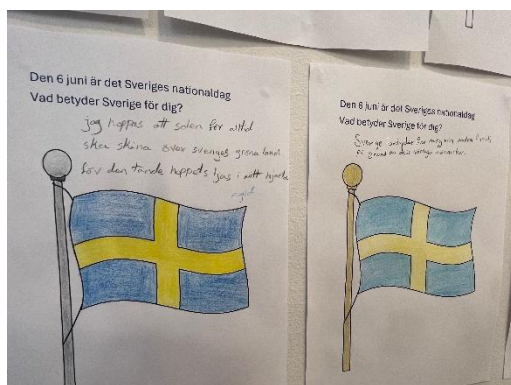 Den 6 juni är det Sveriges nationaldag
Vad betyder Sverige för dig?
jag hoppas att solen för alltid
ska skina över sveriges gröna land
för den tände hoppets ljus i mitt hjärta
Den 6 juni är det Sveriges nationaldag
Vad betyder Sverige för dig?
Sverige betyder för mig min andra
på grund av